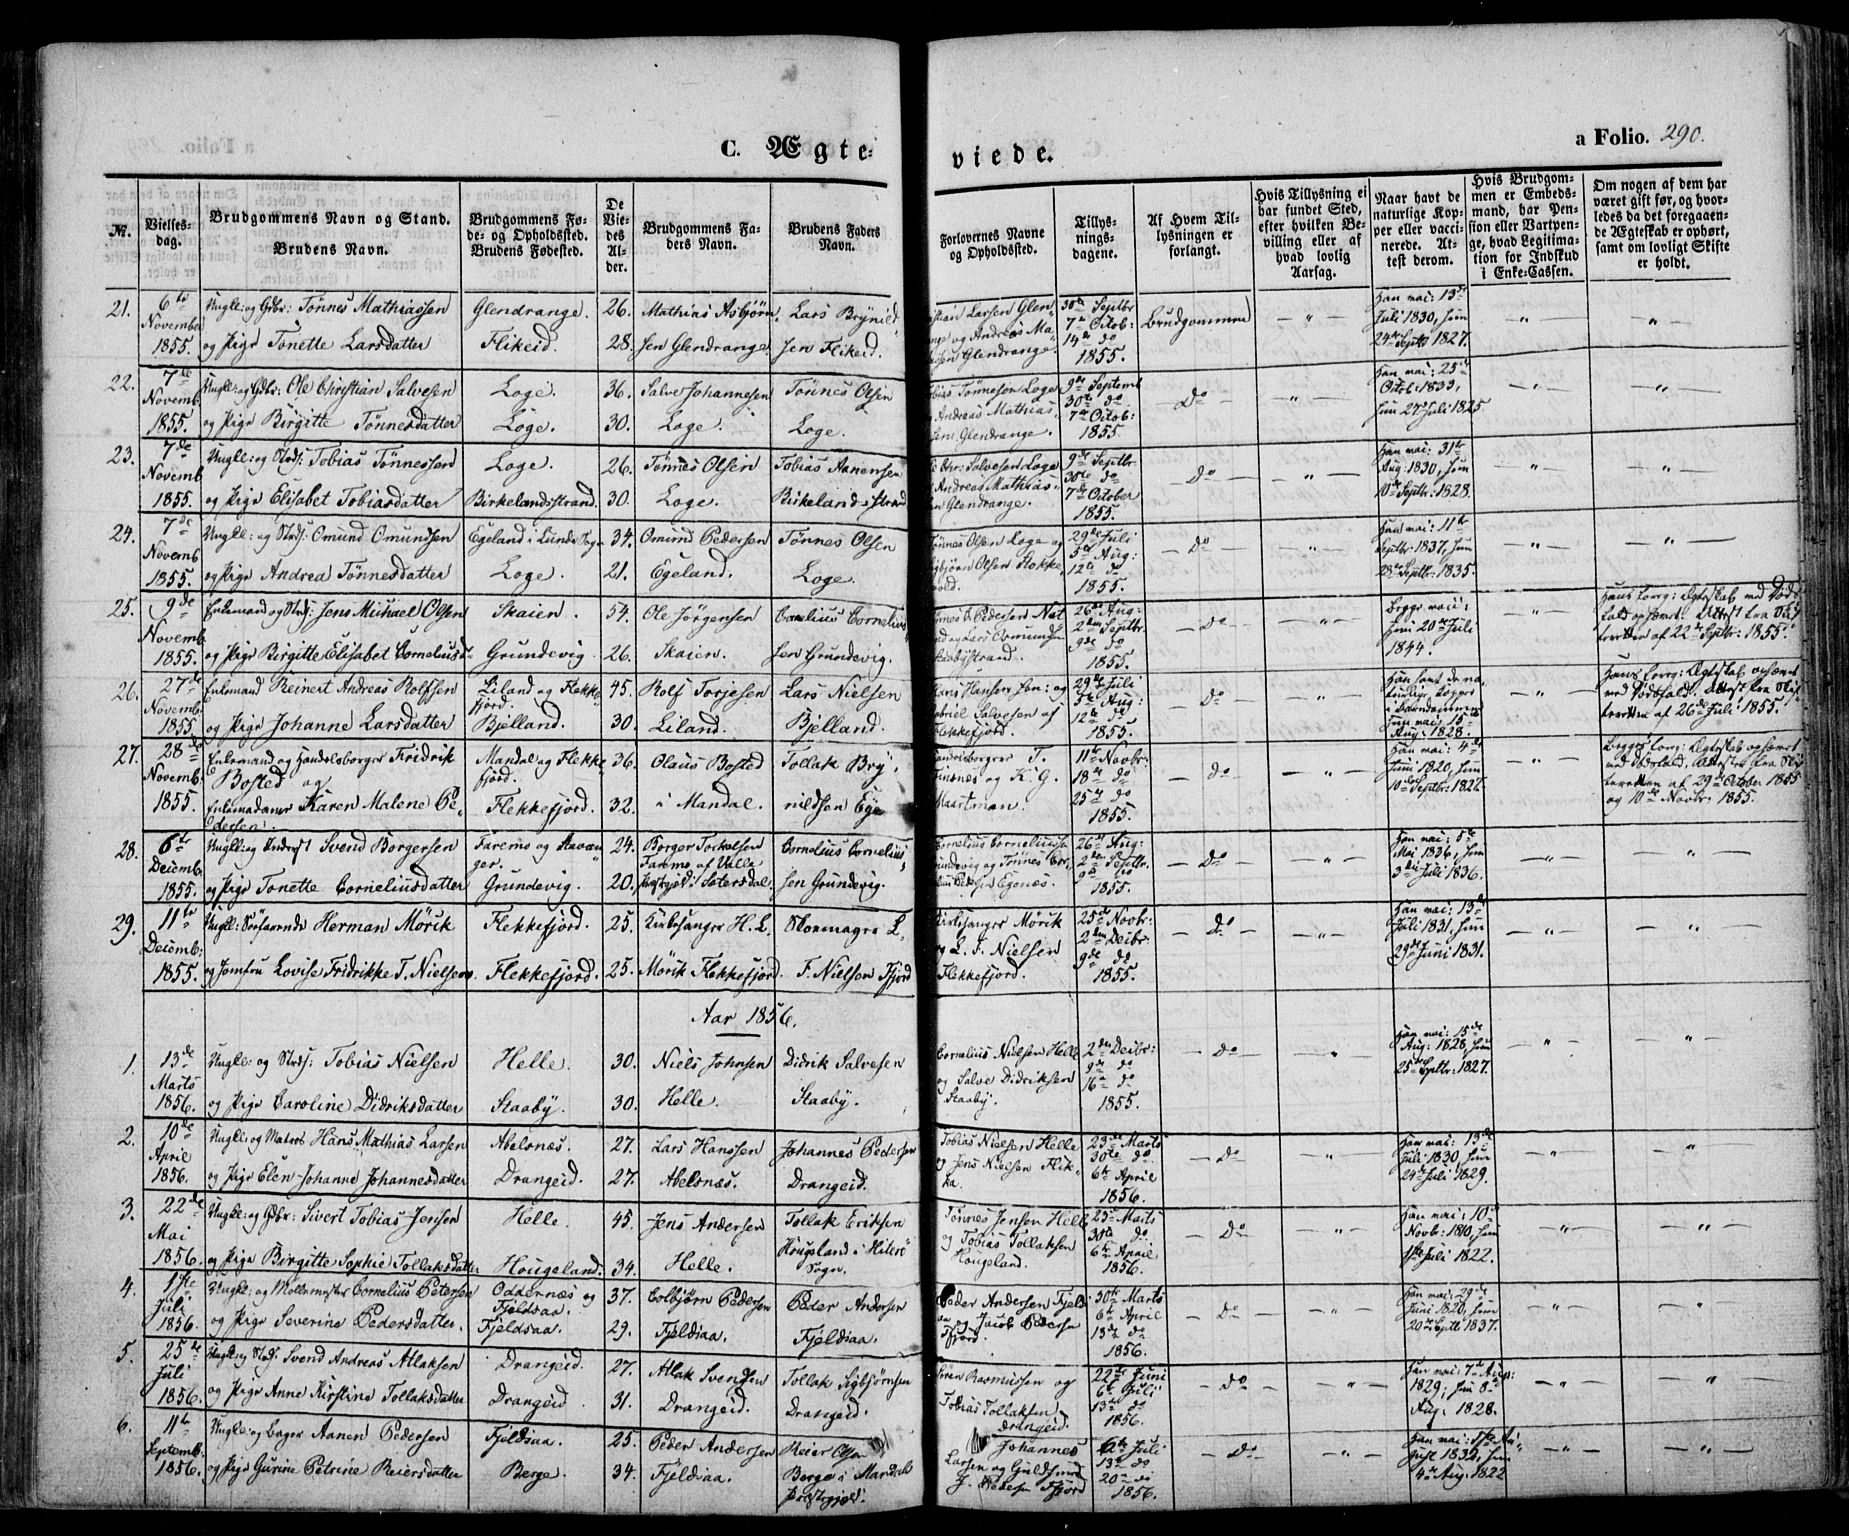 C. Ægte-
viede.
a Folio. 290.
№.
Vielses-
dag.
Brudgommens Navn og Stand.
Brudens Navn.
Brudgommens Fø-
de- og Opholdssted.
Brudens Fødested.
De
Vie-
des
Al-
der.
Brudgommens Fa-
ders Navn.
Brudens Faders
Navn.
Forlovernes Navne
og Opholdssted.
Tillys-
nings-
dagene.
Af Hvem Til-
lysningen er
forlangt.
Hvis Tillysning ei
har fundet Sted,
efter hvilken Be-
villing eller af
hvad lovlig
Aarsag.
Naar havt de
naturlige Kop-
per eller vacci-
nerede. At-
test derom.
Hvis Brudgom-
men er Embeds-
mand, har Pen-
sion eller Vartpen-
ge, hvad Legitima-
tion for Indskud
i Enke-Cassen.
Om nogen af dem har
været gift før, og hvor-
ledes da det foregaaen-
de Ægteskab er ophørt,
samt om lovligt Skifte
er holdt.
21. 6te November 1855.
Ungk: og Gdbr: Tønnes Mathiassen
og Pige Tonette Larsdatter
Glendrange. 26.
Flikeid. 28.
Mathias Asbjørn-
sen Glendrange.
Lars Brynild
sen Flikeid.
stian Larsen Glen
nge og Andreas Ma
sen Glendrange.
30te Septbr
7de Octob:
14de do
1855.
Brudgommen
Han vai: 13de
Juli 1830, hun
24de Septb 1827.
22. 7de Novemb. 1855.
Ungk: og Gdbr: Ole Christian Salvesen
og Pige Birgitte Tønnesdatter
Loge. 36.
Loge. 30.
Salve Johannesen
Loge.
Tönnes Olsen
Loge.
bias Tønnesen Loge
Andreas Mathias
sen Glendrange.
9de Septemb
30te do
7de Octob:
1855.
Do
Han vai: 25de
Octob: 1833,
hun 27de Juli 1825.
23. 7de Novemb 1855.
Ungk: og Strds: Tobias Tønnessen
og Pige Elisabet Tobiasdatter
Loge. 26.
Birkelandsstrand. 30.
Tønnes Olsen
Loge.
Tobias Aanensen
Birkelandsstrand
Chr: Salvesen Loge
Andreas Mathias
en Glendrange.
9de Septbr
30te do
7de October
1855.
Do
Han vai: 31te
Aug: 1830, hun
10de Septbr: 1828.
24. 7de Novemb. 1855.
Ungk: og Strds: Omund Omundsen
og Pige Andrea Tønnesdatter
Egeland i Lunde Sogn 34.
Loge. 21.
Omund Pedersen
Egeland.
Tønnes Olsen
Loge.
Tønnes Olsen Loge og
bjørn Olsen Stokke
vold.
29de Juli
5te Aug:
12te do
1855.
Do
Han vai: 11te
Septbr: 1837, hun
28de Septbr: 1835.
25. 9de Novemb. 1855.
Enkemand og Strds: Jens Michael Olsen
og Pige Birgitte Elisabet Corneliusd-
Skaien. 54.
Grundevig. 26.
Ole Jørgensen
Skaien.
Cornelius Cornelius
sen Grundevig.
nnes Pedersen Nat
nd og Lars Edmundsen
26de Aug:
2den Septbr.
9de do
1855.
Do
Begge vai:
hun 20de Juli
1844.
Hans forrg: Ægteskab ved Døds-
fald ophævet. Attest fra Skif-
teretten af 22de Septbr: 1855.
26. 27de Novemb: 1855
Enkemand Reinert Andreas Rolfsen
og Pige Johanne Larsdatter
Liland og Flekke
fjord. 45.
Bjelland. 30.
Rolf Torjesen
Liland.
Lars Nielsen
Bjelland.
Hans Hansen Jon: og
Gabriel Salvesen af
Flekkefjord.
29de Juli
5te Aug:
12te do
1855.
Do
Han havt de na-
turlige Kopper
i Barndommen
hun vai: 15de
Aug: 1828.
Hans forrg: Ægteskab ophævet
ved Dødsfald. Attest fra Skif-
teretten af 26de Juli 1855.
27. 28de Novemb: 1855.
Enkemand og Handelsborger Fridrik
Bosted og
Enkemadame Karen Malene Pe-
dersen.
Mandal og Flekke
fjord. 36.
Flekkefjord. 32.
Olaus Bosted
i Mandal.
Tollak Bry-
nildsen Eye
Handelsborgere T.
Finsnes og K. G.
Maartman.
11te Novbr:
18de do
25de do
1855.
Do
Han vai: 4de
Juni 1820, hun
10de Septbr: 1826.
Begges forrg: Ægteskab ophævet
ved Dødsfald. Attester fra Skif-
teretten af 29de October 1855
og 10de Novbr: 1855.
28. 6te Decemb. 1855.
Svend Borgersen
og Pige Tonette Corneliusdatter
Faremo og Stavan
ger. 24.
Grundevig. 20.
Borger Torkelsen
Faremo af Valle
Præstegjeld: Sætersdal.
Cornelius Cornelius
sen Grundevig.
Cornelius Corneliussen
Grundevig og Tønnes Cor-
Egenæs.
26de Aug:
2den Septbr.
9de do
1855.
Do
Han vai: 5de
Mai 1836, hun
3die Juli 1836.
29. 11te Decemb: 1855.
Ungk: Søfarende Herman Mørik
og Jomfru Lovise Fridrikke T. Nielsen
Flekkefjord. 25.
Flekkefjord. 25.
Kirkesanger H. L.
Mørik Flekkefjord
Skomager L.
F. Nielsen Fjord
Kirkesanger Mørik
og L. F. Nielsen
Flekkefjord.
25de Novbr:
2den Decbr:
9de do
1855.
Do
Han vai: 13de
Juli 1831, hun
29de Juni 1831.
Aar 1856.
1. 13de Marts 1856.
Ungk: og Strds: Tobias Nielsen
og Pige Caroline Didriksdatter
Helle. 30.
Staaby. 30.
Niels Johnsen
Helle.
Didrik Salvesen
Staaby.
Cornelius Nielsen Helle
og Salve Didriksen
Staaby.
2den Decbr:
9de do
16de do
1855.
Do
Han vai: 15de
Aug: 1828, hun
25de Septbr: 1827.
2. 10de April 1856.
Ungk: og Matros Hans Mathias Larsen
og Pige Elen Johanne Johannesdatter
Abelsnæs. 27.
Drangeid. 27.
Lars Hanssen
Abelsnæs.
Johannes Pedersen
Drangeid.
Tobias Nielsen Helle
og Jens Nielsen Flik-
ka.
23de Marts
30te do
6te April
1856.
Do
Han vai: 13de
Juli 1830, hun
24de Juli 1829.
3. 22de Mai 1856.
Ungk: og Gdbr: Sivert Tobias Jensen
og Pige Birgitte Sophie Tollaksdatter
Helle. 45.
Hougeland. 34.
Jens Andersen
Helle.
Tollak Eriksen
Hougeland i Hiterø
Sogn.
Tønnes Jensen Helle
og Tobias Tollaksen
Hougeland.
25de Marts
30te do
6te April.
1856.
Do
Han vai: 10de
Novbr: 1810, hun
1ste Juli 1822.
4. 1ste Juli 1856.
Ungk: og Møllermester Cornelius Petersen
og Pige Severine Pedersdatter.
Oddernæs og
Fjeldsaa. 37.
Fjeldsaa. 29.
Colbjørn Pedersen
Fjeldsaa.
Peder Andersen
Fjeldsaa.
Peder Andersen Fjeld-
saa og Jacob Pedersen
Fjord.
30te Marts
6te April
13de do
1856.
Do
Han vai: 29de
Juni 1820, hun
20de Septb 1837.
5. 25de Juli 1856.
Ungk: og Strds: Svend Andreas Atlaksen
og Pige Anne Kirstine Tollaksdatter
Drangeid. 27.
Drangeid 31.
Atlak Svendsen
Drangeid.
Tollak Sigbjørnsen
Drangeid.
Søren Rasmussen og
Tobias Tollaksen
Drangeid.
22de Juni
6te Juli
13de do
1856.
Do
Han vai: 7de Aug:
1829, hun 8de
Aug: 1828.
6. 11te Septemb. 1856.
Ungk: og Bager Aanen Pedersen
og Pige Gurine Petrine Reiersdatter
Fjeldsaa. 25.
Berge. 34.
Peder Andersen
Fjeldsaa.
Reier Olsen
Berge i Mandals
Præstegjeld.
Johannes
Larsen og Guldsmed
J. Pedersen Fjord
6te Juli
13de do
20de do
1856.
Do
Han vai: 1ste Au-
gust 1832, hun
4de Aug: 1822